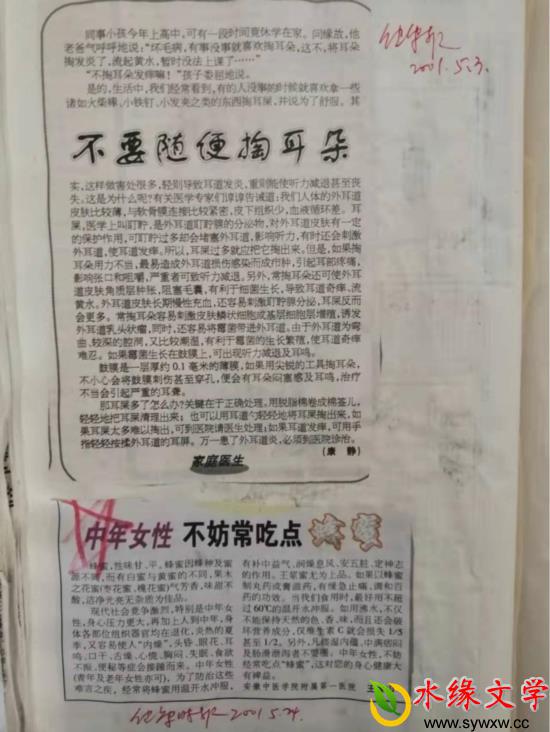 同事小孩今年上高中，可有一段时间竟休学在家。问缘故，他
老爸气呼呼地说：“坏毛病，有事没事就喜欢掏耳朵，这不，将耳朵
掏发炎了，流起黄水，暂时没法上课了……”
“不掏耳朵发痒嘛！”孩子委屈地说。
是的，生活中，我们经常看到，有的人没事的时候就喜欢拿一些
诸如火柴棒、小铁钉、小发夹之类的东西掏耳屎，并说为了舒服。其
不要随便掏耳朵
实，这样做害处很多，轻则导致耳道发炎，重则能使听力减退甚至丧
失。这是为什么呢？有关医学专家们谆谆告诫道：我们人体的外耳道
皮肤比较薄，与软骨膜连接比较紧密，皮下组织少，血液循环差。耳
屎，医学上叫耵聍，是外耳道耵聍腺的分泌物，对外耳道皮肤有一定
的保护作用，可耵聍过多却会堵塞外耳道，影响听力，有时还会刺激
外耳道，使耳道发痒。所以，耳屎过多就应把它掏出来，但是，如果掏
耳朵用力不当，最易造成外耳道损伤感染而成疖肿，引起耳部疼痛，
影响张口和咀嚼，严重者可致听力减退。另外，常掏耳朵还可使外耳
道皮肤角质层肿胀，阻塞毛囊，有利于细菌生长，导致耳道奇痒、流
黄水。外耳道皮肤长期慢性充血，还容易刺激耵聍腺分泌，耳屎反而
会更多。常掏耳朵容易刺激皮肤鳞状细胞或基层细胞层增殖，诱发
外耳道乳头状瘤，同时，还容易将霉菌带进外耳道。由于外耳道为弯
曲、较深的腔洞，又比较潮湿，有利于霉菌的生长繁殖，使耳道奇痒
难忍。如果霉菌生长在鼓膜上，可出现听力减退及耳鸣。
鼓膜是一层厚约0.1毫米的薄膜，如果用尖锐的工具掏耳朵，
不小心会将鼓膜刺伤甚至穿孔，便会有耳朵闷塞感及耳鸣，治疗
不当会引起严重的耳聋。
那耳屎多了怎么办？关键在于正确处理，用脱脂棉卷成棉签儿，
轻轻地把耳屎清理出来；也可以用耳道勺轻轻地将耳屎掏出来，如
果耳屎太多难以掏出，可到医院请医生处理；如果耳道发痒，可用手
指轻轻按揉外耳道的耳屏。万一患了外耳道炎，必须到医院诊治。
（康 静）
家庭医生
2001.5.3.
中年女性 不妨常吃点 蜂蜜
蜂蜜，性味甘、平。蜂蜜因蜂种及蜜
源不同，而有白蜜与黄蜜的不同，果木
之花蜜（枣花蜜、槐花蜜）气芳香，味甜不
酸，洁净光亮无杂质为佳品。
现代社会竞争激烈，特别是中年女
性，身心压力更大，再加上人到中年，身
体各部位组织器官均在退化，炎热的夏
季，又容易使人“内燥”，头昏、眼花、耳
鸣、口干、舌燥、心慌、胸闷、失眠、食欲
不振、便秘等症会接踵而来。中年女性
（青年及老年女性亦可），为了防治这些
难言之疾，经常将蜂蜜用温开水冲服，
有补中益气、润燥息风、安五脏、定神志
的作用。王浆蜜尤为上品。如果以蜂蜜
制丸药或膏滋药，有缓急止痛，调和百
药的功效。当我们食用时，最好用不超
过60℃的温开水冲服。如用沸水，不仅
不能保持天然的色、香、味，而且还会破
坏营养成分，仅维生素C就会损失1/5
至1/2。另外，凡痰湿内蕴，中满痞闷
及肠滑泄泻者不要服。中年女性，不妨
经常吃点“蜂蜜”，这对您的身心健康大
有裨益。
安徽中医学院附属第一医院 王
2001.5.24.
水缘文学
www.sywxw.cc